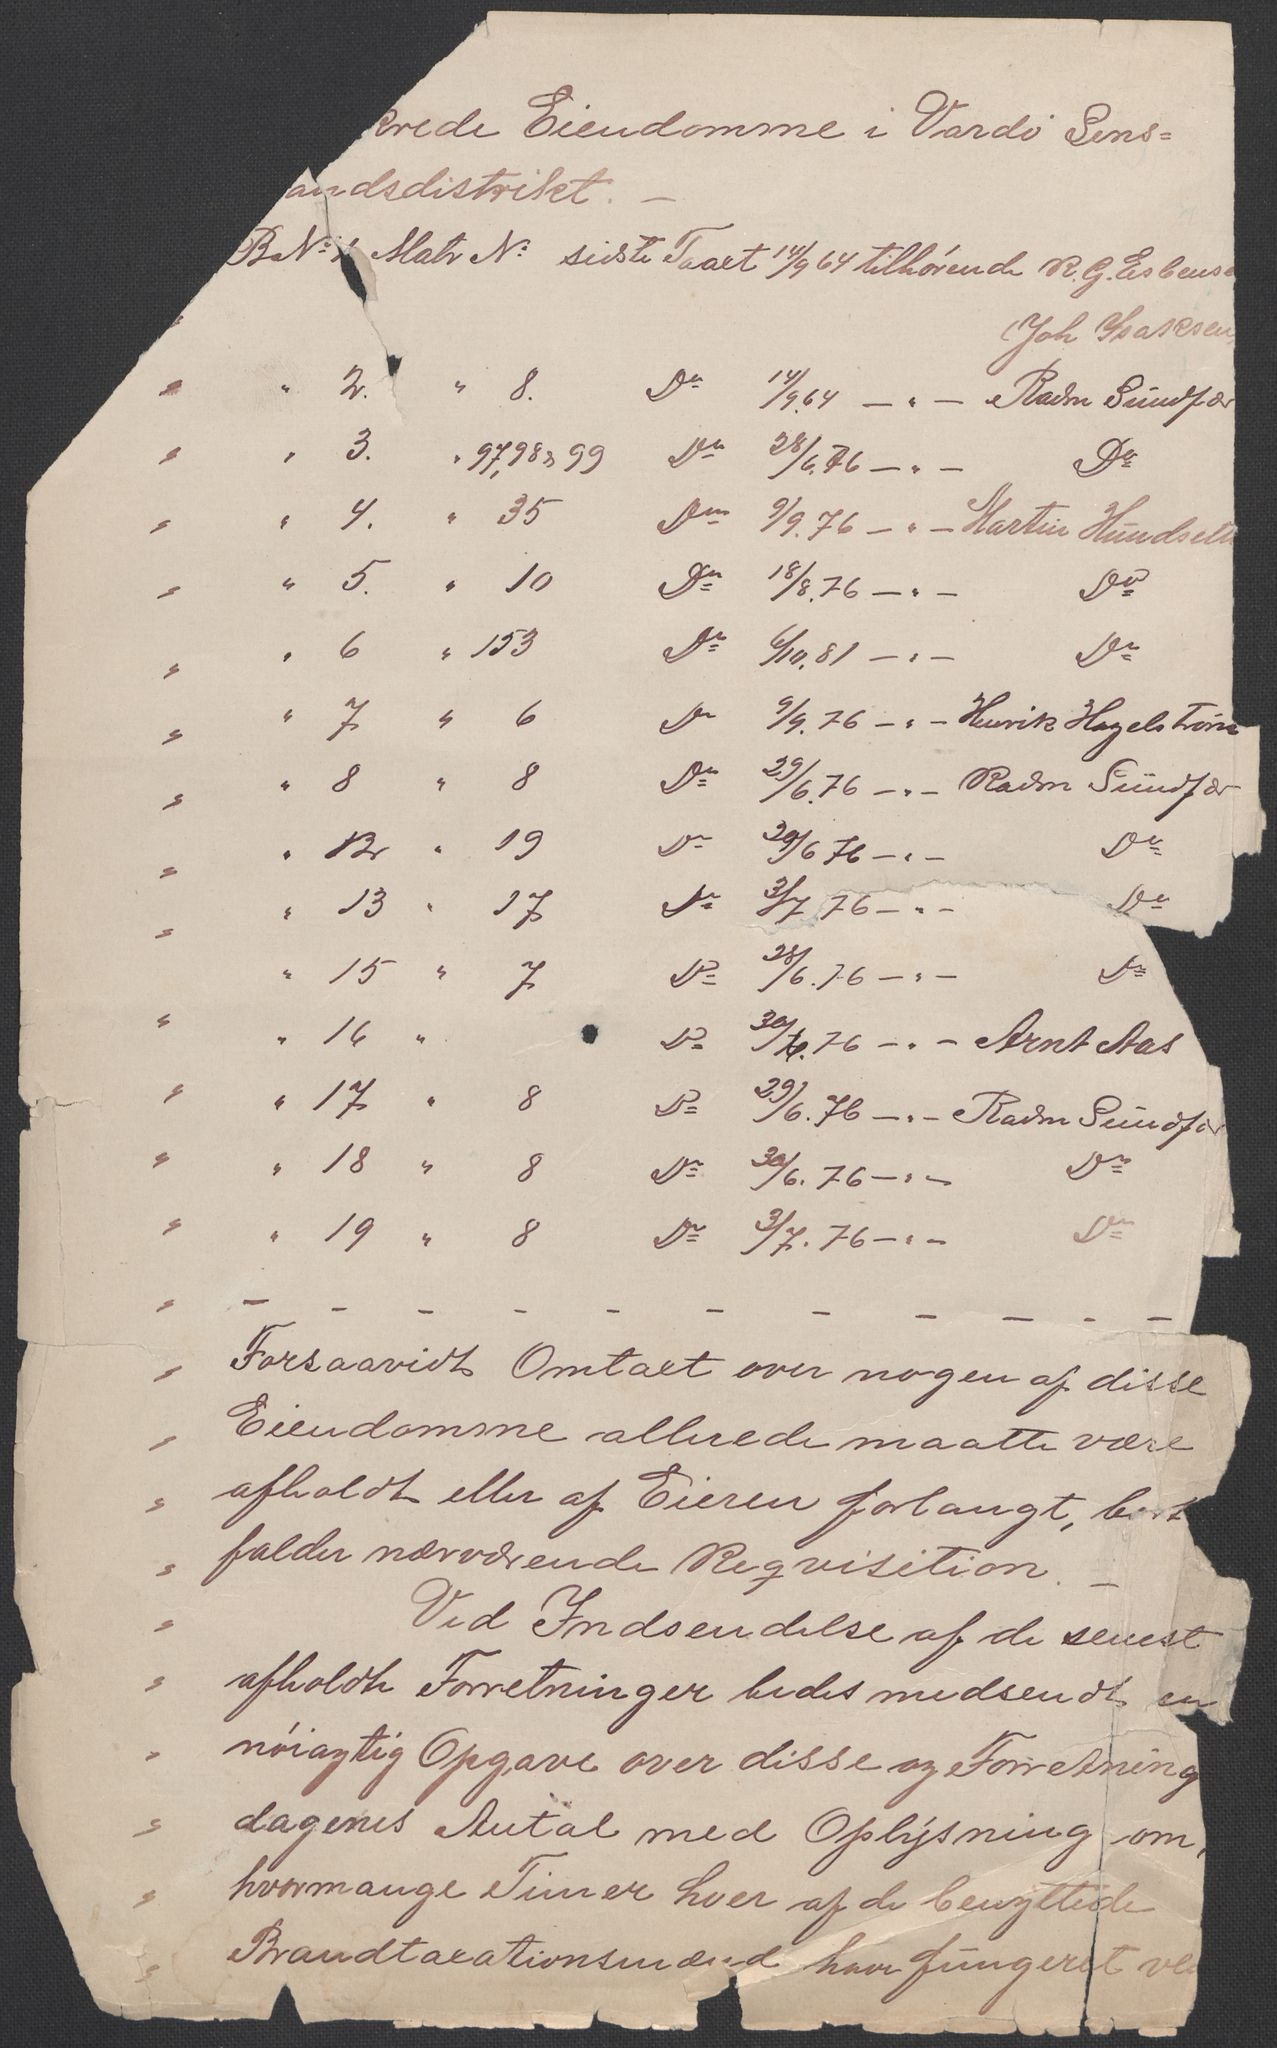 krede Eiendomme i Vardö Lens=
andsdistrikt. —
B No 1 Matr No sidste Taxt 14/9 64 tilhörende R. G. Esbens
" (Joh Isaksen
" " 2. " 8. Do 14/9.64 — " — Radm Sundfær
" " 3. " 97,98 & 99 Do 28/6.76 — " — Do
" " 4. " 35 Do 9/9.76 — " — Martin Hundseth
" " 5. " 10 Do 18/8.76 — " — Do
" " 6 " 153 Do 6/10.81 — " — Do
" " 7 " 6 Do 9/9.76 — " — Henrik Hagelström
" " 8 " 8 Do 29/6.76 — " — Radm Sundfær
" " 12 " 19 Do 29/6 76 — " — Do
" " 13 " 17 Do 3/7.76 — " — Do
" " 15 " 7 Do 28/6.76 — " — Do
" " 16 " Do 30/6.76 — " — Arnt Aas
" " 17 " 8 Do 29/6.76 — " — Radm Sundfær
" " 18 " 8 Do 30/6.76 — " — Do
" " 19 " 8 Do 3/7.76 — " — Do
" — — — — — — — — — — —
" Forsaavidt Omtaxt over nogen af disse
" Eiendomme allerede maatte være
" afholdt eller af Eieren forlangt, bort
" falder nærværende Reqvisition. —
" Ved Indsendelse af de senest
" afholdte Forretninger bedes medsendt en
" nöiagtig Opgave over disse og Forretning
" dagenes Antal med Oplysning om,
" hvormange Timer hver af de benyttede
" Brandtaxationsmænd have fungeret ve